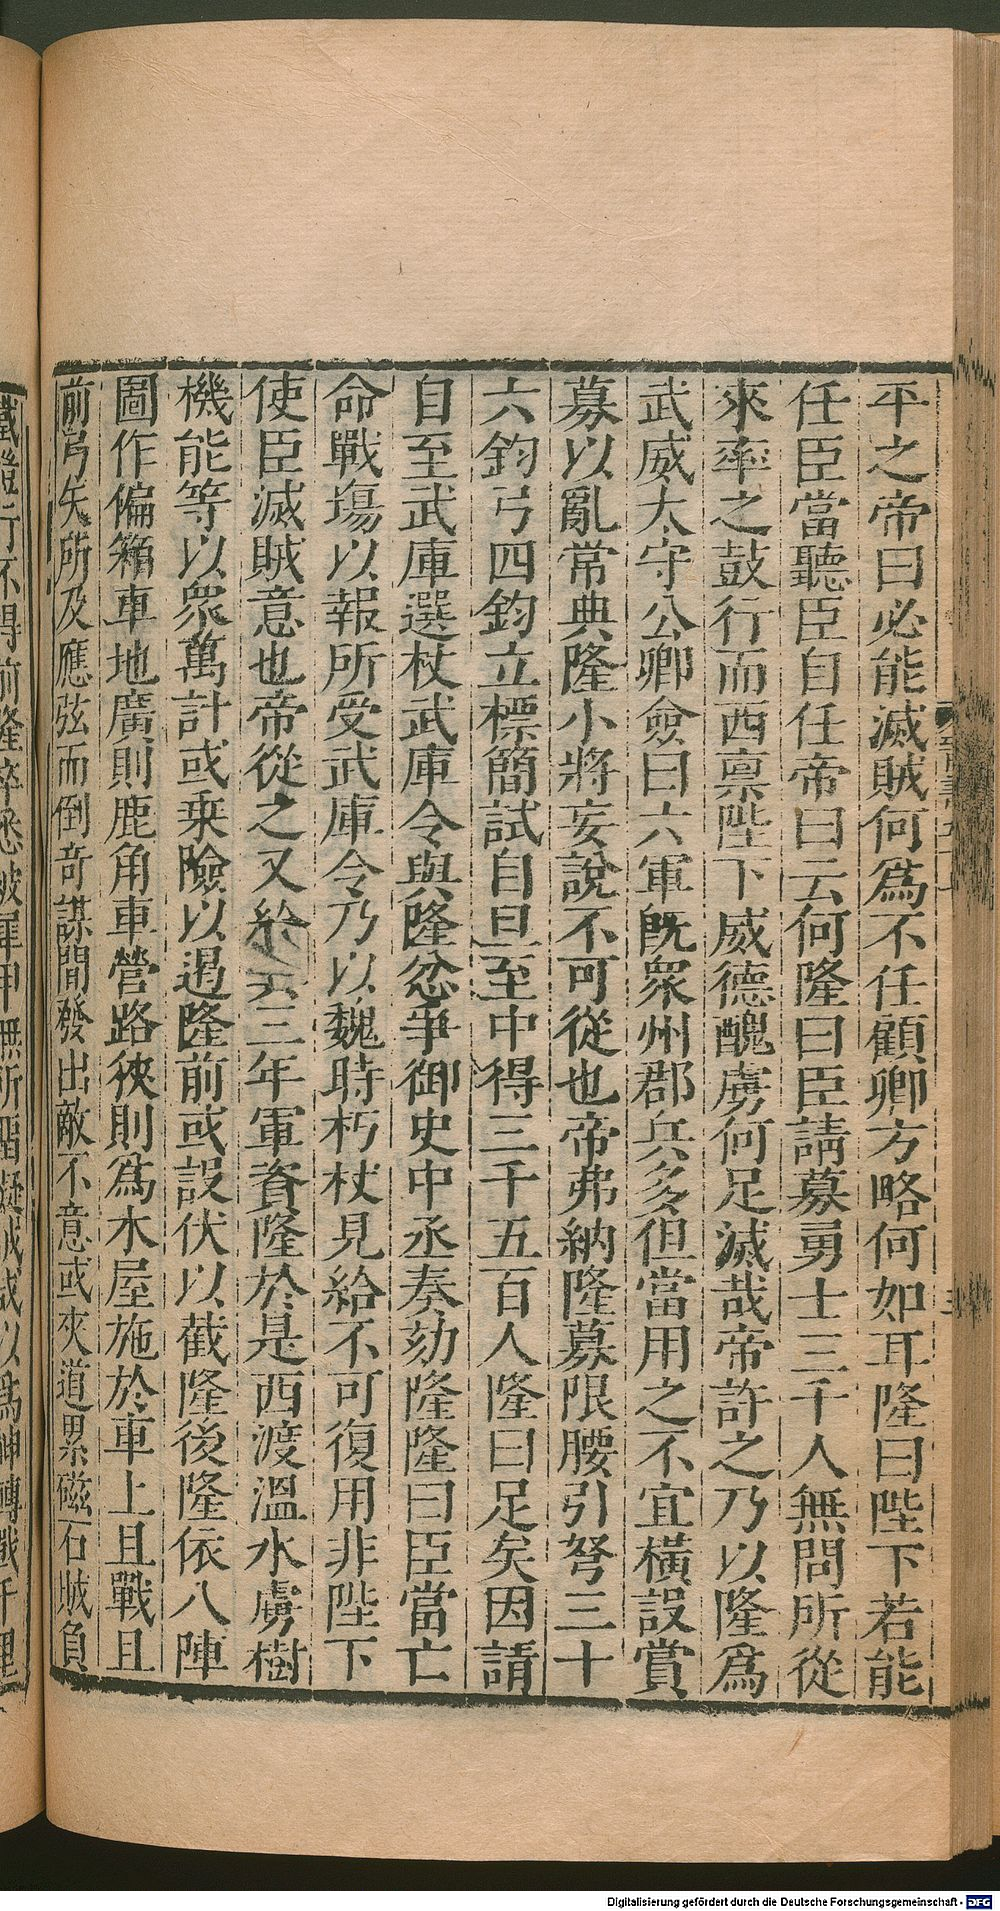 平之帝曰必能滅賊何爲不任顧卿方略何如耳隆曰陛下若能
任臣當聽臣自任帝曰云何隆曰臣請募勇士三千人無問所從
來率之鼓行而西禀陛下威德醜虜何足滅哉帝許之乃以隆爲
武威太守公卿僉曰六軍旣衆州郡兵多但當用之不宜橫設賞
募以亂常典隆小將妄說不可從也帝弗納隆募限腰引弩三十
六鈞弓四鈞立標簡試自旦至中得三千五百人隆曰足矣因請
自至武庫選杖武庫令與隆忿爭御史中丞奏劾隆隆曰臣當亡
命戰塲以報所受武庫令乃以魏時朽杖見給不可復用非陛下
使臣滅賊意也帝從之又給其三年軍資隆於是西渡溫水虜樹
機能等以衆萬計或乗險以遏隆前或設伏以截隆後隆依八陣
圖作偏箱車地廣則鹿角車營路狹則爲木屋施於車上且戰且
前弓矢所及應弦而倒奇謀間發出敵不意或夾道累磁石賊負
Digitalisierung gefördert durch die Deutsche Forschungsgemeinschaft - DFG